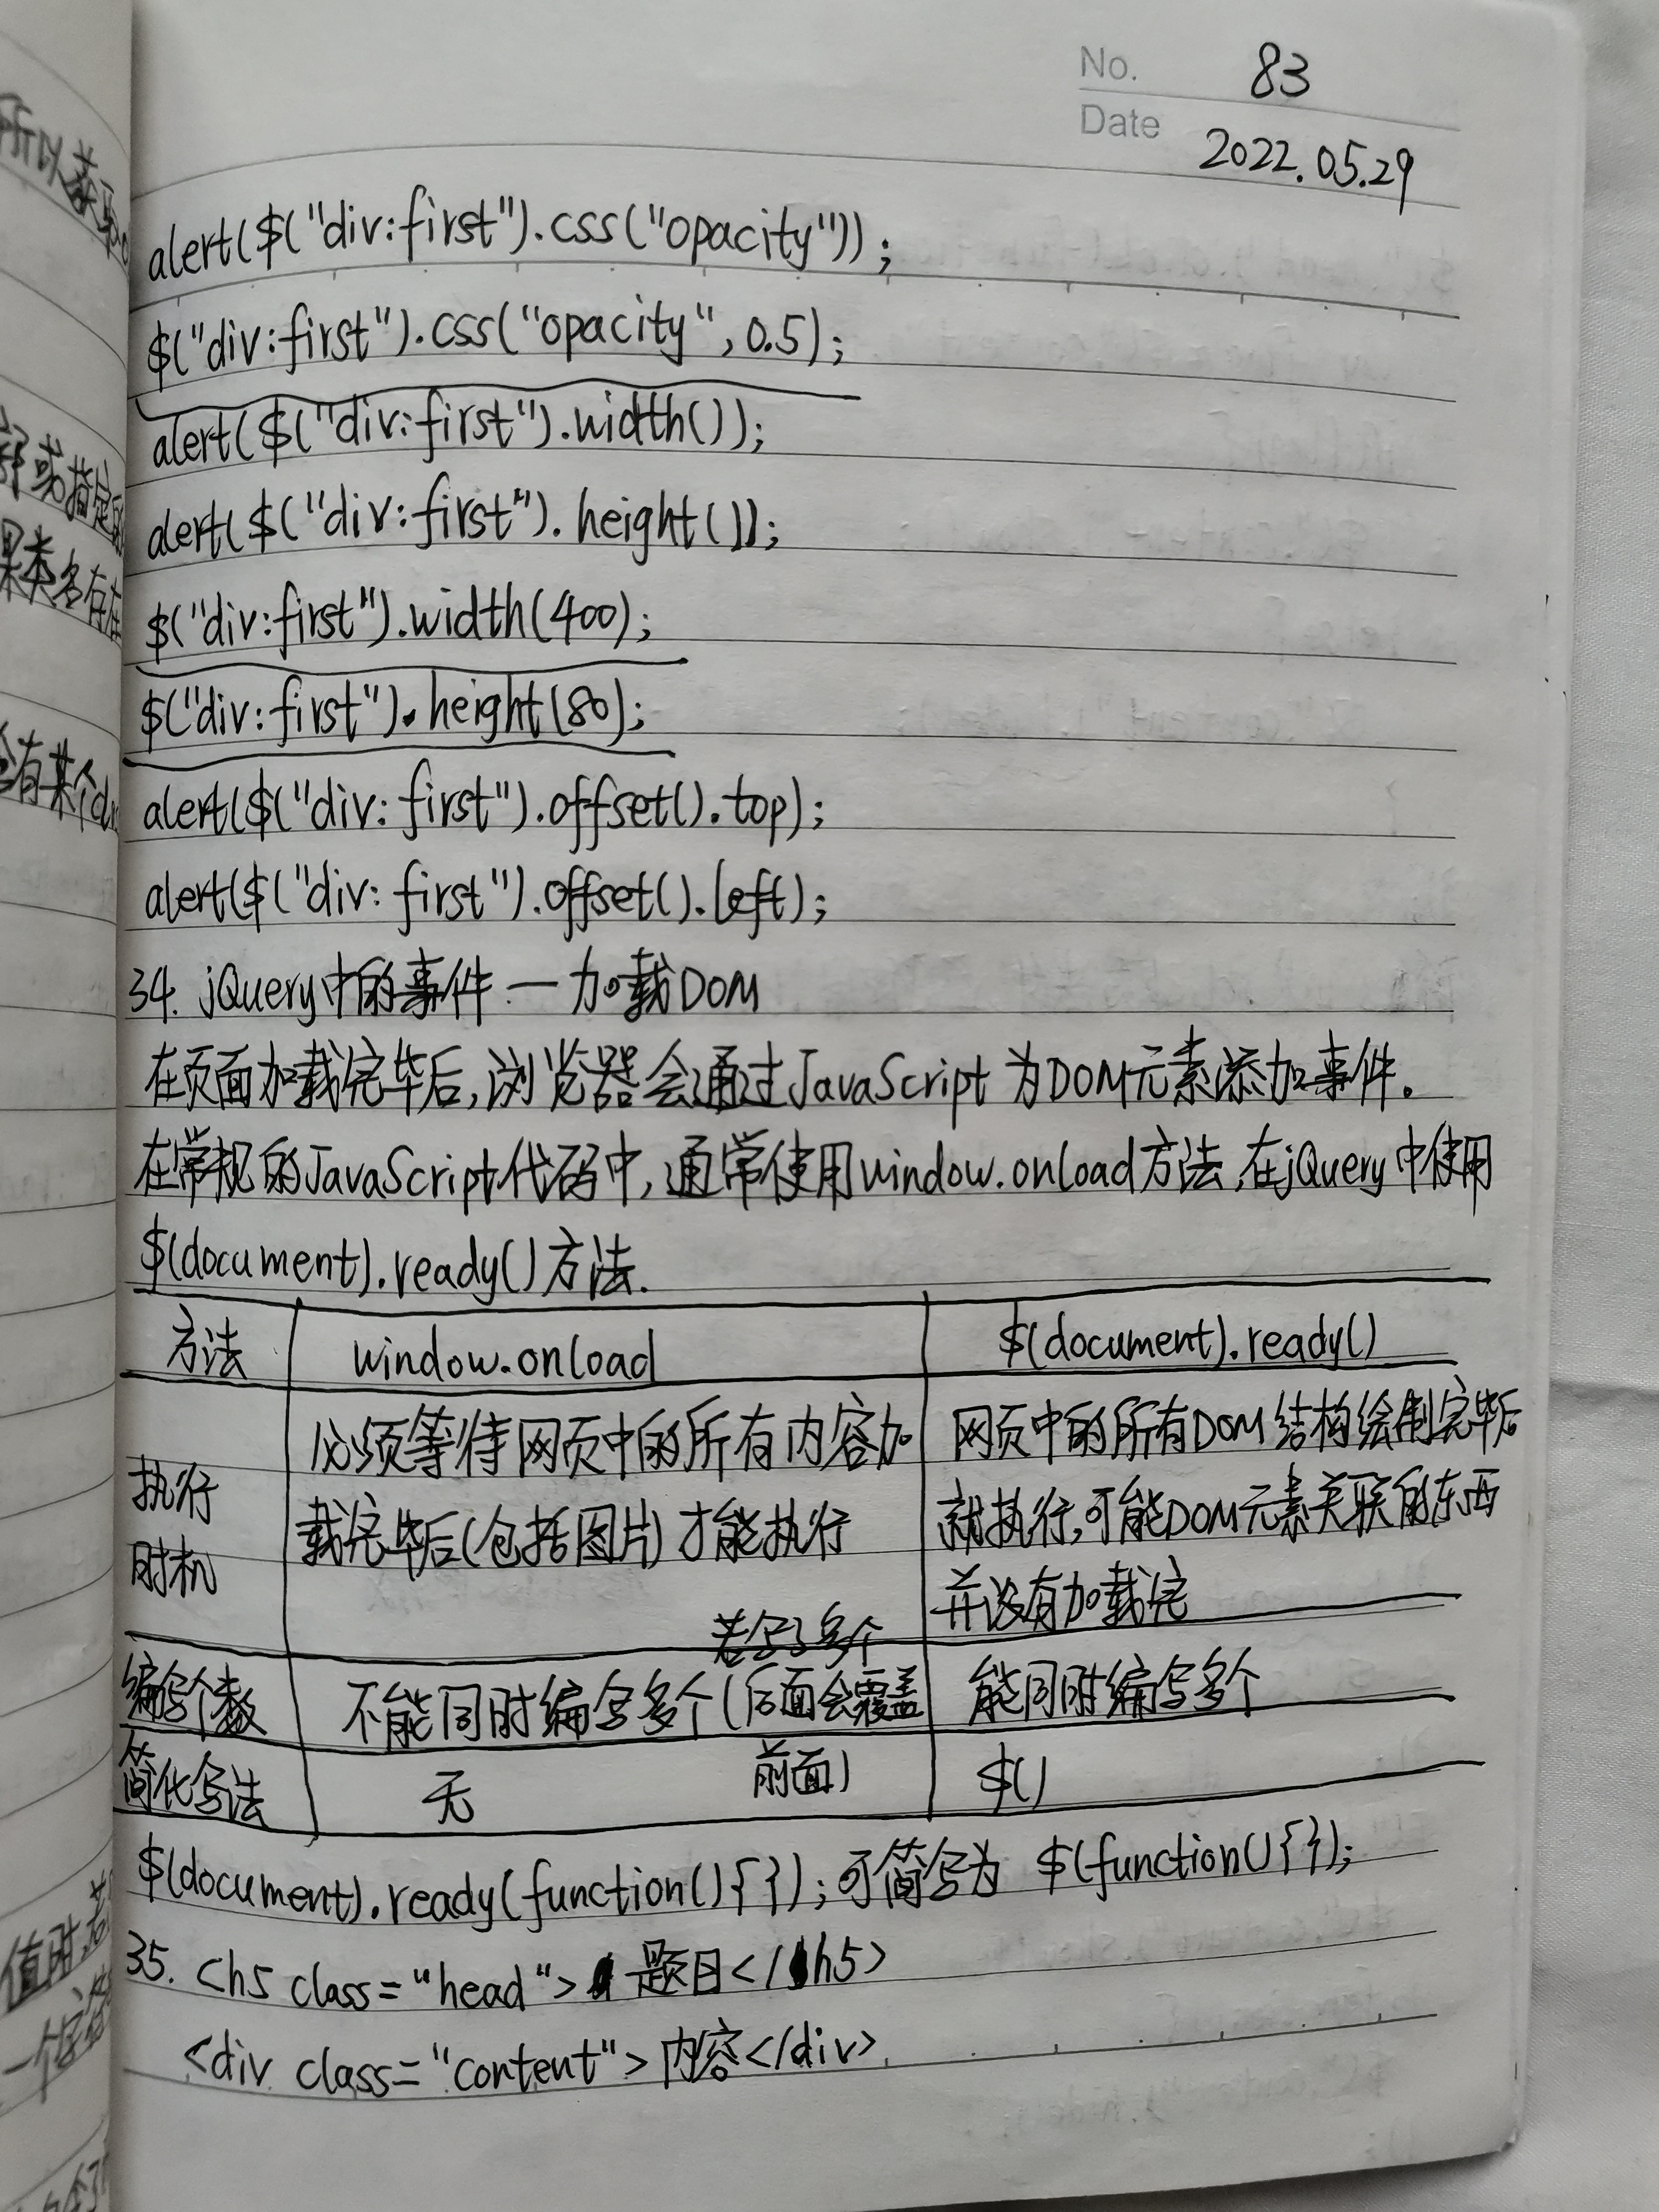 No. 83
Date 2022.05.29
alert($("div:first").css("opacity"));
$("div:first").css("opacity",0.5);
alert($("div:first").width());
alert($("div:first").height());
$("div:first").width(400);
$("div:first").height(80);
alert($("div:first").offset().top);
alert($("div:first").offset().left);
34. jQuery中的事件—加载DOM
在页面加载完毕后,浏览器会通过JavaScript为DOM元素添加事件。
在常规的JavaScript代码中,通常使用window.onload方法,在jQuery中使用
$(document).ready()方法.
方法 window.onload $(document).ready()
必须等待网页中的所有内容加 网页中的所有DOM结构绘制完毕后
执行 载完毕后(包括图片)才能执行 就执行,可能DOM元素关联的东西
时机 并没有加载完
若写了多个
编写个数 不能同时编写多个(后面会覆盖 能同时编写多个
前面)
简化写法 无 $()
$(document).ready(function(){});可简写为 $(function(){});
35. <h5 class="head">题目</h5>
<div class="content">内容</div>
所以
或指定
类名存在
有某个
值时,若
一个